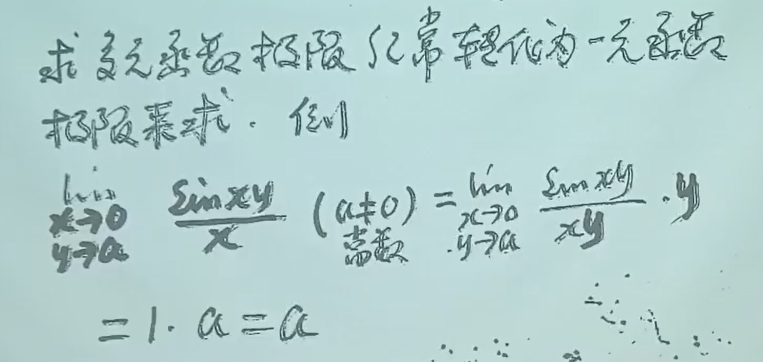 求多元函数极限经常转化为一元函数
极限来求. 例
lim x→0 y→a sinxy/x (a≠0) 常数 = lim x→0 y→a sinxy/xy · y
= 1 · a = a